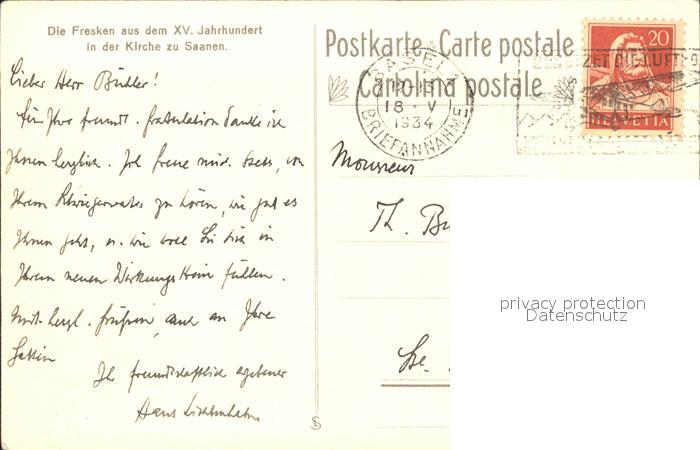 Die Fresken aus dem XV. Jahrhundert
in der Kirche zu Saanen.
Postkarte - Carte postale
Cartolina postale
BASEL 1
18 · V
1934
BRIEFANNAHME
BENÜTZET DIE LUFTPO
20
HELVETIA
Lieber Herr Bühler!
Für Ihre freundl. Gratulation danke ich
Ihnen herzlich. Ich freue mich stets, von
Ihrem Schwiegervater zu hören, wie gut es
Ihnen geht, u. wie wohl Sie sich in
Ihrem neuen Wirkungskreis fühlen.
Mit herzl. Grüssen, auch an Ihre
Gattin
Ihr freundschaftlich ergebener
Hans
Monsieur
Th. Bü
privacy protection
Datenschutz